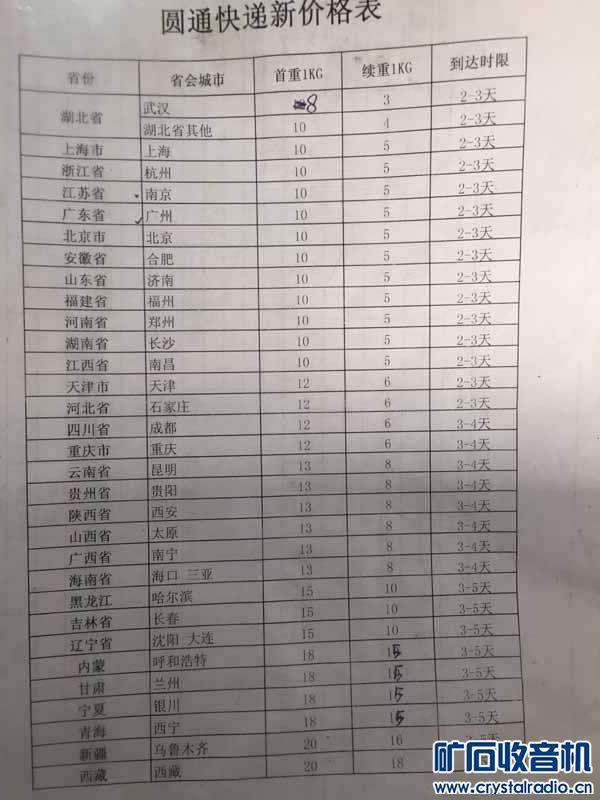 圆通快递新价格表
省份 省会城市 首重1KG 续重1KG 到达时限
湖北省 武汉 8 3 2-3天
湖北省其他 10 4 2-3天
上海市 上海 10 5 2-3天
浙江省 杭州 10 5 2-3天
江苏省 南京 10 5 2-3天
广东省 广州 10 5 2-3天
北京市 北京 10 5 2-3天
安徽省 合肥 10 5 2-3天
山东省 济南 10 5 2-3天
福建省 福州 10 5 2-3天
河南省 郑州 10 5 2-3天
湖南省 长沙 10 5 2-3天
江西省 南昌 10 5 2-3天
天津市 天津 12 6 2-3天
河北省 石家庄 12 6 2-3天
四川省 成都 12 6 3-4天
重庆市 重庆 12 6 3-4天
云南省 昆明 13 8 3-4天
贵州省 贵阳 13 8 3-4天
陕西省 西安 13 8 3-4天
山西省 太原 13 8 3-4天
广西省 南宁 13 8 3-4天
海南省 海口 三亚 13 8 3-4天
黑龙江 哈尔滨 15 10 3-5天
吉林省 长春 15 10 3-5天
辽宁省 沈阳 大连 15 10 3-5天
内蒙 呼和浩特 18 15 3-5天
甘肃 兰州 18 15 3-5天
宁夏 银川 18 15 3-5天
青海 西宁 18 15 3-5天
新疆 乌鲁木齐 20 16 3-5天
西藏 西藏 20 18
矿石收音机
www.crystalradio.cn